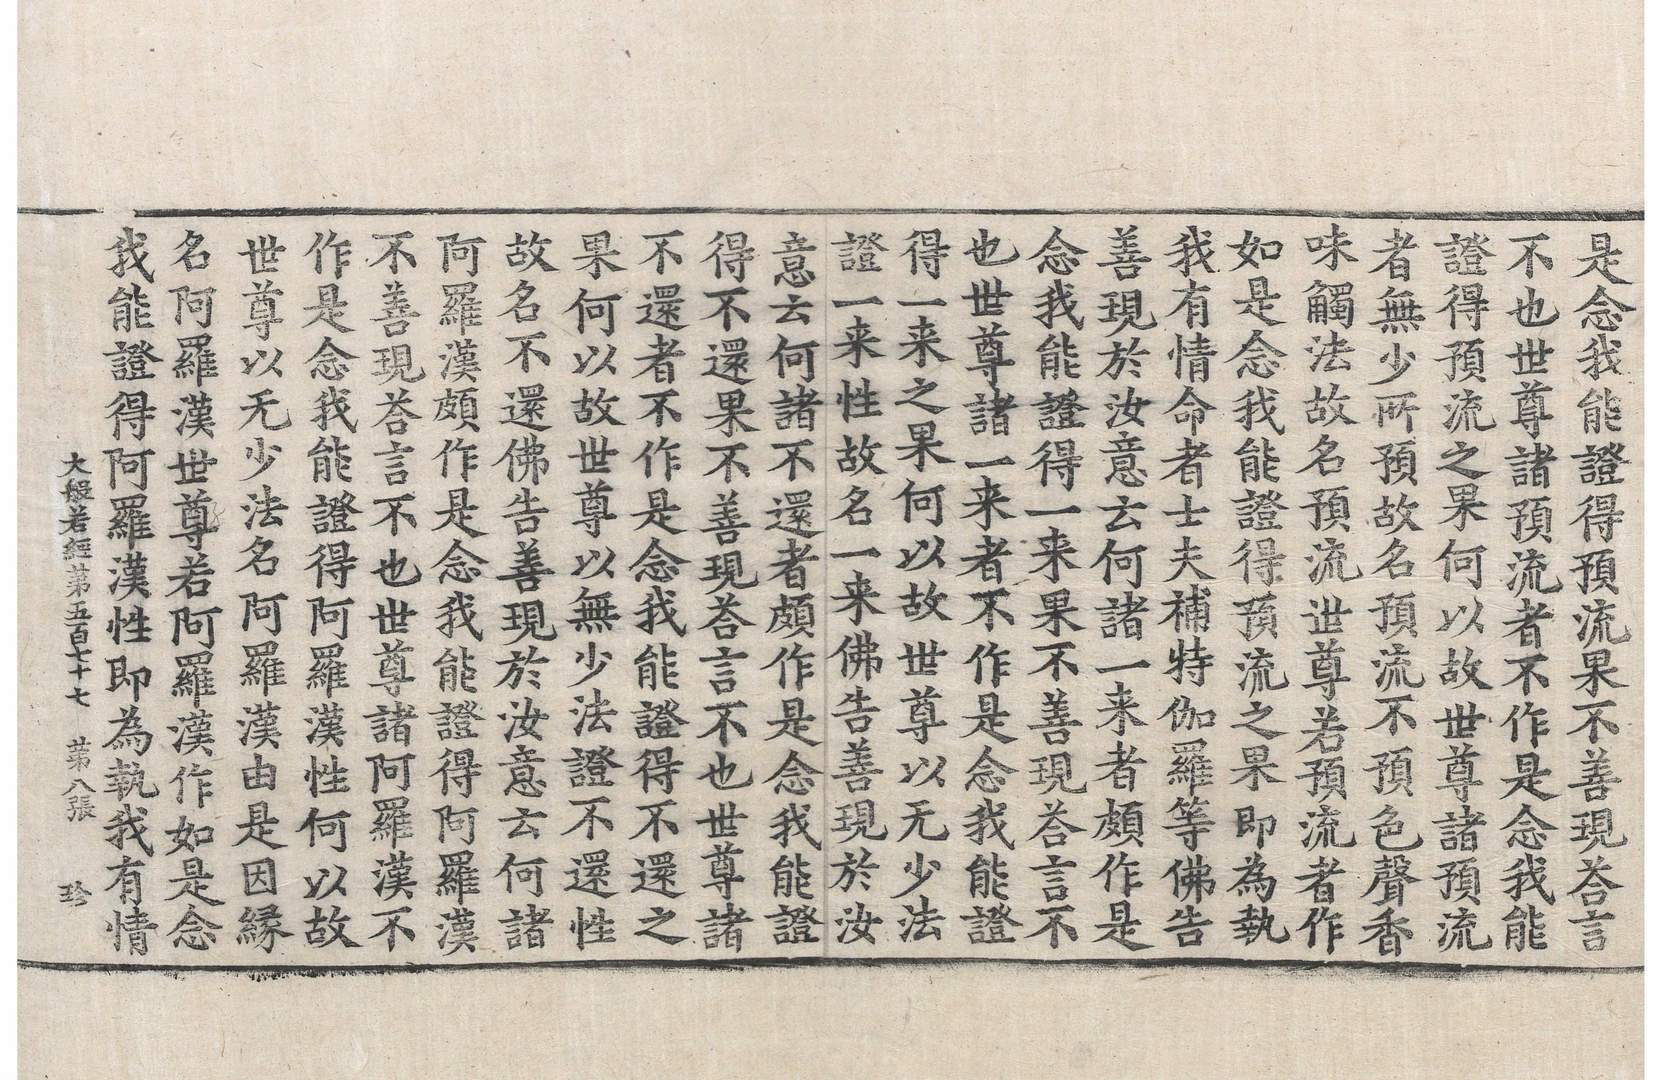 是念我能證得預流果不善現荅言
不也世尊諸預流者不作是念我能
證得預流之果何以故世尊諸預流
者無少所預故名預流不預色聲香
味觸法故名預流世尊若預流者作
如是念我能證得預流之果即為執
我有情命者士夫補特伽羅等佛告
善現於汝意云何諸一来者頗作是
念我能證得一来果不善現荅言不
也世尊諸一来者不作是念我能證
得一来之果何以故世尊以无少法
證一来性故名一来佛告善現於汝
意云何諸不還者頗作是念我能證
得不還果不善現荅言不也世尊諸
不還者不作是念我能證得不還之
果何以故世尊以無少法證不還性
故名不還佛告善現於汝意云何諸
阿羅漢頗作是念我能證得阿羅漢
不善現荅言不也世尊諸阿羅漢不
作是念我能證得阿羅漢性何以故
世尊以无少法名阿羅漢由是因縁
名阿羅漢世尊若阿羅漢作如是念
我能證得阿羅漢性即為執我有情
大般若經苐五百七十七 苐八張 珍